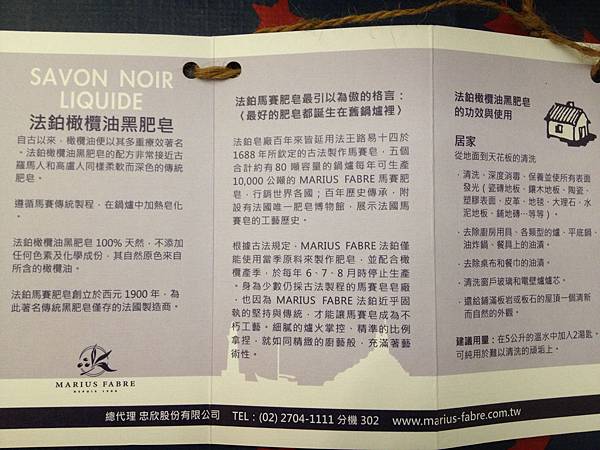 SAVON NOIR
LIQUIDE
法鉑橄欖油黑肥皂
自古以來，橄欖油便以其多重療效著名
。法鉑橄欖油黑肥皂的配方非常接近古
羅馬人和高盧人同樣柔軟而深色的傳統
肥皂。
遵循馬賽傳統製程，在鍋爐中加熱皂化
。
法鉑橄欖油黑肥皂 100% 天然，不添加
任何色素及化學成份，其自然原色來自
所含的橄欖油。
法鉑馬賽肥皂創立於西元 1900 年，為
此著名傳統黑肥皂僅存的法國製造商。
MARIUS FABRE
DEPUIS 1900
法鉑馬賽肥皂最引以為傲的格言：
〈最好的肥皂都誕生在舊鍋爐裡〉
法鉑皂廠百年來皆延用法王路易十四於
1688 年所欽定的古法製作馬賽皂，五個
合計約有 80 噸容量的鍋爐每年可生產
10,000 公噸的 MARIUS FABRE 馬賽肥
皂，行銷世界各國；百年歷史傳承，附
設有法國唯一肥皂博物館，展示法國馬
賽皂的工藝歷史。
根據古法規定，MARIUS FABRE 法鉑僅
能使用當季原料來製作肥皂，並配合橄
欖產季，於每年 6、7、8 月時停止生產
。身為少數仍採古法製程的馬賽皂皂廠
，也因為 MARIUS FABRE 法鉑近乎固
執的堅持與傳統，才能讓馬賽皂成為不
朽工藝。細膩的爐火掌控，精準的比例
拿捏，就如同精緻的廚藝般，充滿著藝
術性。
法鉑橄欖油黑肥皂
的功效與使用
居家
從地面到天花板的清洗
．清洗、深度消毒、保養並使所有表面
發光（瓷磚地板、鑲木地板、陶瓷、
塑膠表面、皮革、地毯、大理石、水
泥地板、鋪地磚…等等）。
．去除廚房用具、各類型的爐、平底鍋、
油炸鍋、餐具上的油漬。
．去除桌布和餐巾的油漬。
．清洗窗戶玻璃和電壁爐爐芯。
．還給鋪滿板岩或板石的屋頂一個清新
而自然的外觀。
建議用量：在5公升的溫水中加入2湯匙。
可純用於難以清洗的頑垢上。
總代理 忠欣股份有限公司 TEL：(02) 2704-1111 分機 302 www.marius-fabre.com.tw